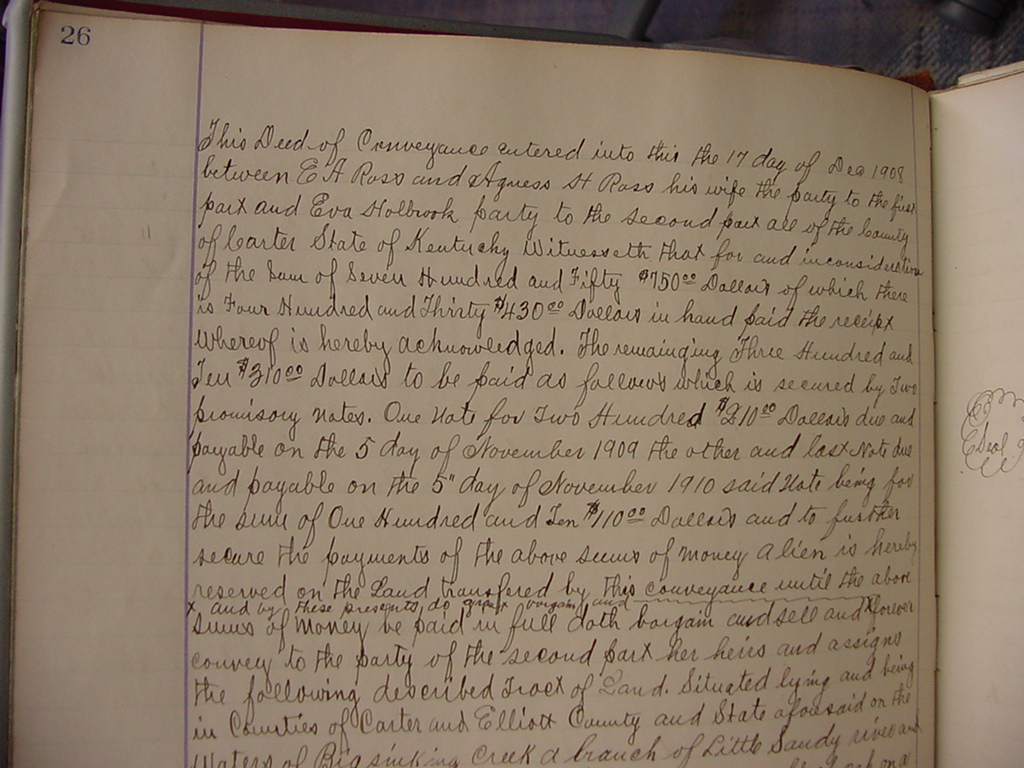 26
This Deed of Conveyance entered into this the 17 day of Dec 1908
between E A Ross and Agness H Ross his wife the party to the first
part and Eva Holbrook party to the second part all of the County
of Carter State of Kentucky Witnesseth that for and inconsideration
of the sum of Seven Hundred and Fifty $750.00 Dollars of which there
is Four Hundred and Thirty $430.00 Dollars in hand paid the receipt
whereof is hereby acknowledged. The remainging Three Hundred and
Ten $310.00 Dollars to be paid as follows which is secured by Two
promisory notes. One Note for Two Hundred $210.00 Dollars due and
payable on the 5 day of November 1909 the other and last Note due
and payable on the 5" day of November 1910 said Note being for
the sum of One Hundred and Ten $110.00 Dollars and to further
secure the payments of the above sums of money a lien is hereby
reserved on the Land transfered by this conveyance until the above
x and by these presents do grant bargain and
sums of money be paid in full doth bargain and sell and x forever
convey to the party of the second part her heirs and assigns
the following described Tract of Land. Situated lying and being
in Counties of Carter and Elliott County and State aforesaid on the
Waters of Big sinking Creek a branch of Little Sandy river and
on a
Seal